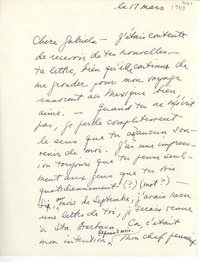 le 17 mars 1948
Chère Gabriela — J'étais contente
de recevoir de tes nouvelles —
ta lettre, bien qu'elle continue de
me gronder pour mon voyage
innocent au Mexique bien
aimé. — Quand tu ne m'écris
pas, je perds complètement
le sens que tu aies un sou-
venir de moi. J'ai une impres-
sion toujours que tu penses seule-
ment aux gens que tu vois
quotidiennement (?) (mot?) —
Si, au mois de Septembre, j'avais reçu
une lettre de toi, je serais venue
à Sta. Barbara. Ça, c'était
mon intention depuis Mon chef